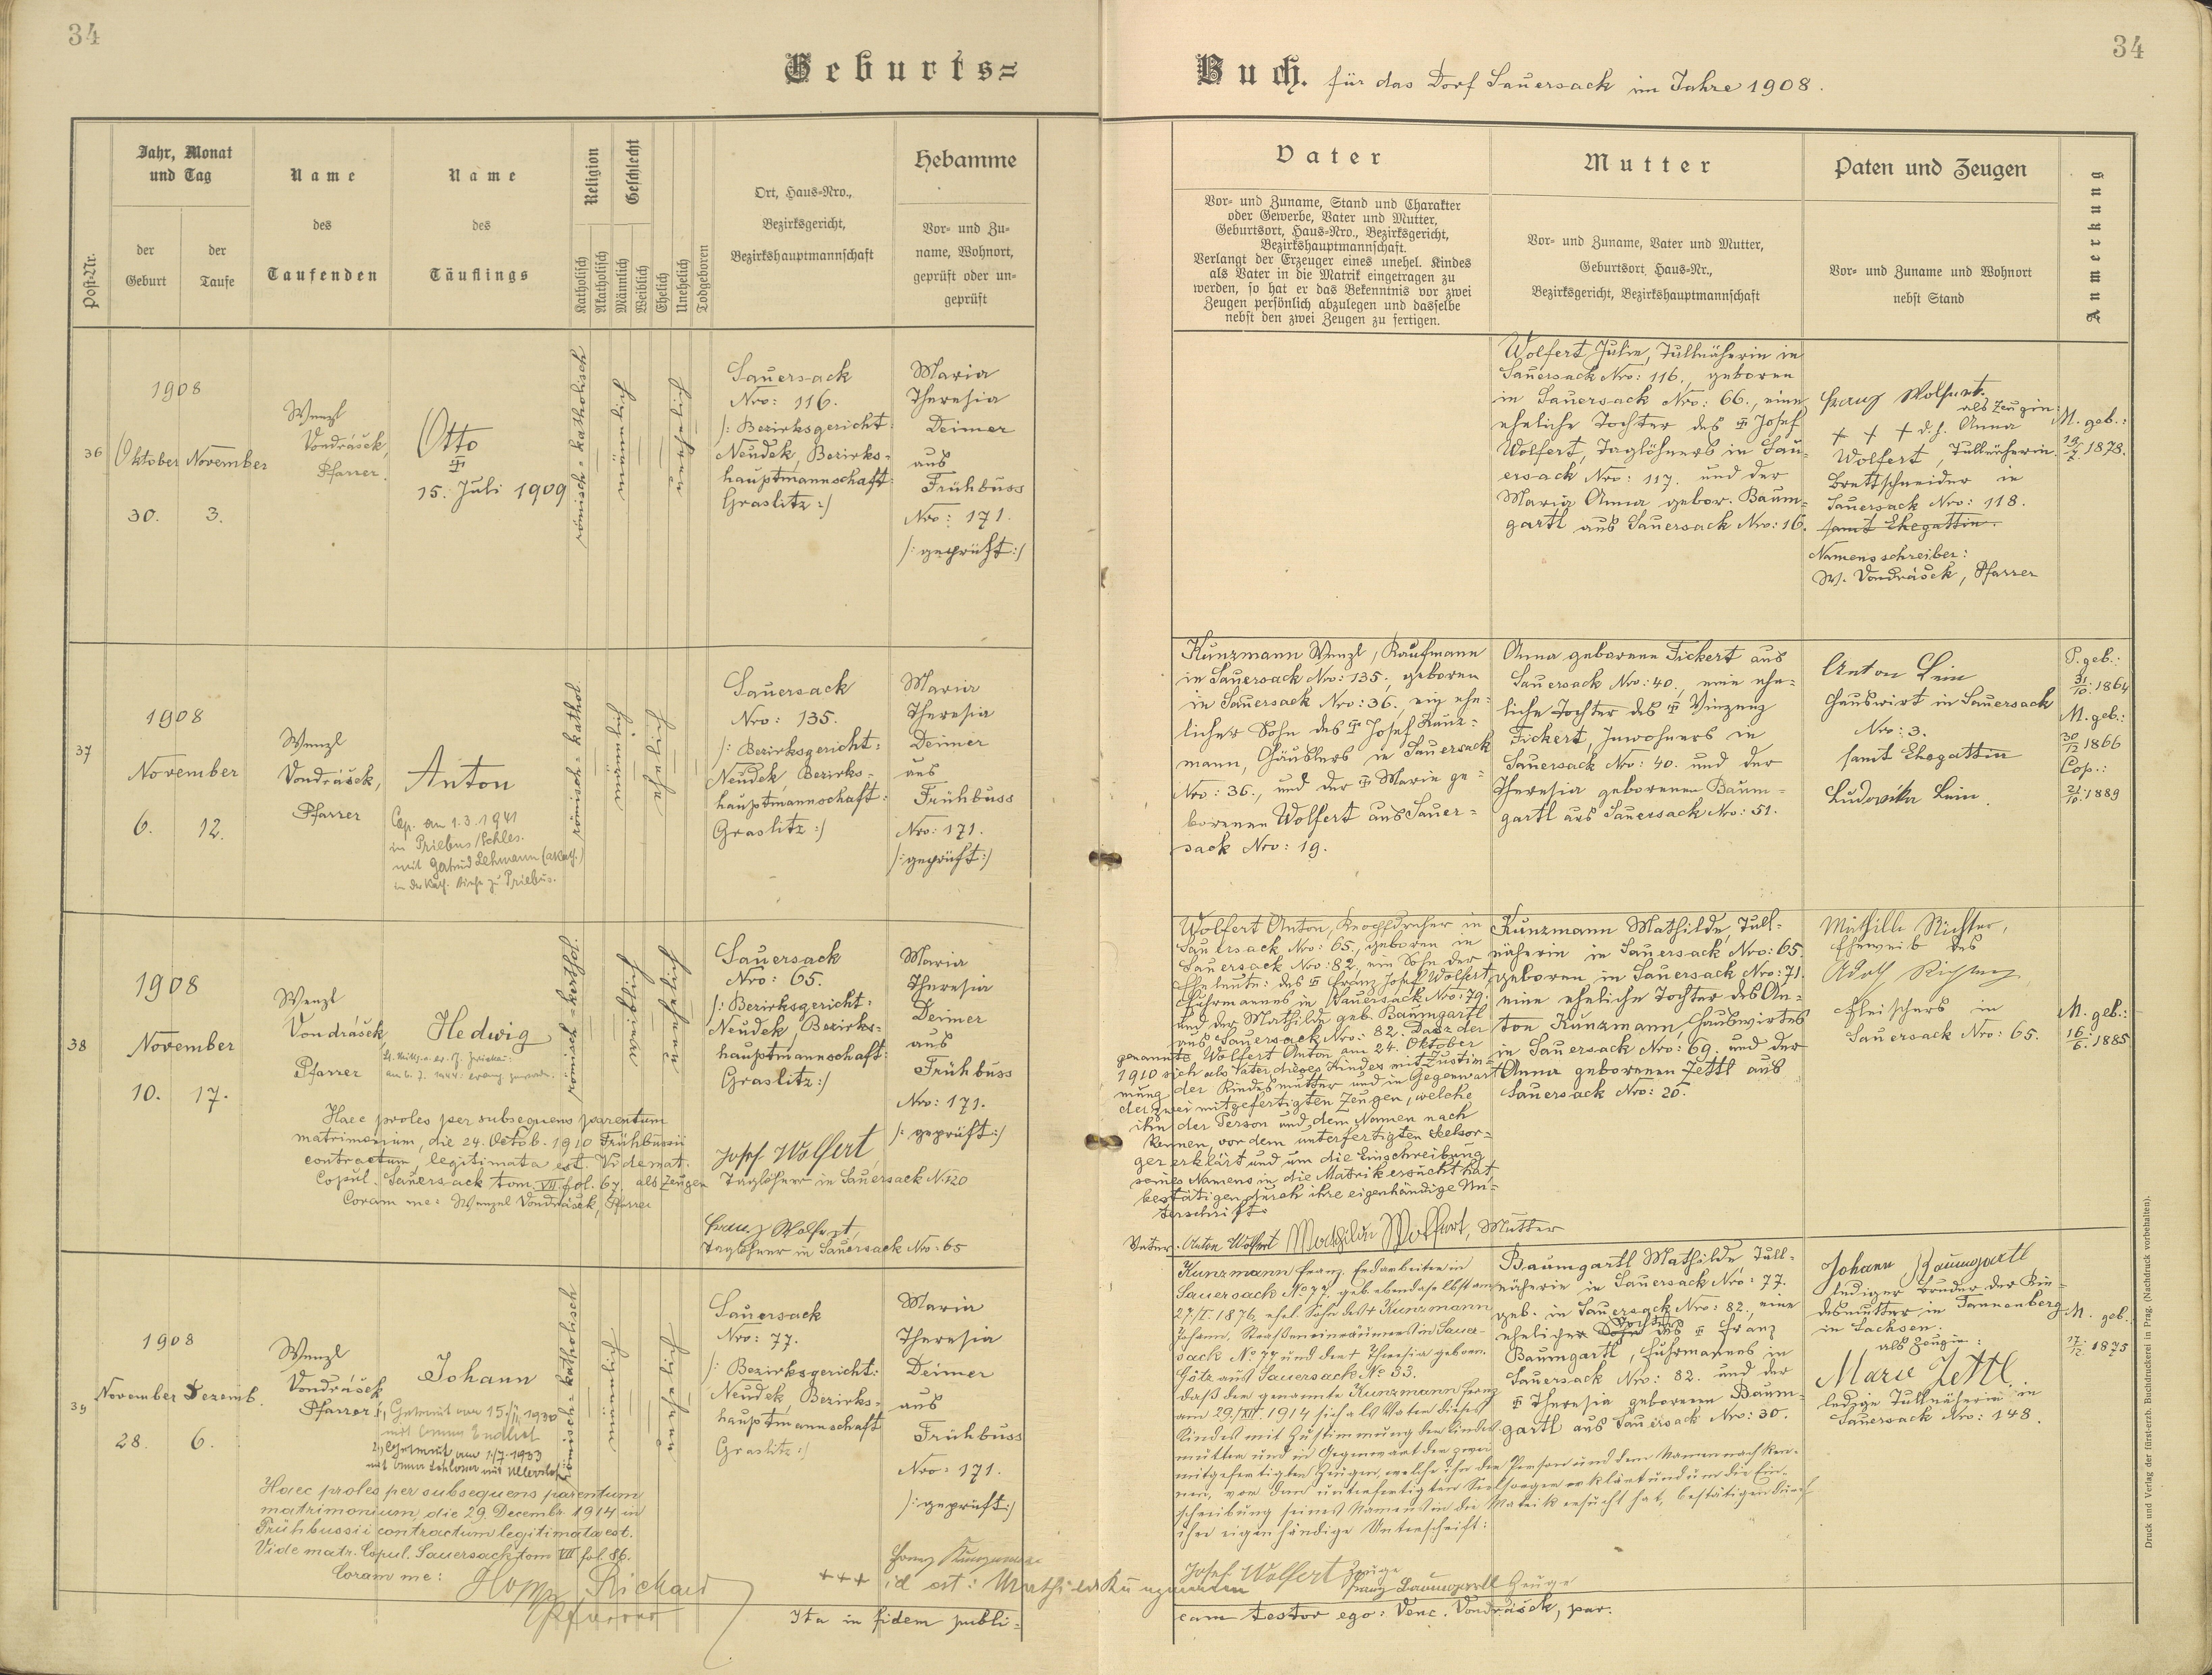 34
34
Geburts=
Buch. für das Dorf Sauersack im Jahre 1908.
Post-Nr.
Jahr, Monat
und Tag
der
Geburt
der
Taufe
Name
des
Taufenden
Name
des
Täuflings
Religion
Katholisch
Akatholisch
Geschlecht
Männlich
Weiblich
Ehelich
Unehelich
Todgeboren
Ort, Haus-Nro.,
Bezirksgericht,
Bezirkshauptmannschaft
Hebamme
Vor- und Zu-
name, Wohnort,
geprüft oder un-
geprüft
Vater
Vor- und Zuname, Stand und Charakter
oder Gewerbe, Vater und Mutter,
Geburtsort, Haus-Nro., Bezirksgericht,
Bezirkshauptmannschaft.
Verlangt der Erzeuger eines unehel. Kindes
als Vater in die Matrik eingetragen zu
werden, so hat er das Bekenntnis vor zwei
Zeugen persönlich abzulegen und dasselbe
nebst den zwei Zeugen zu fertigen.
Mutter
Vor- und Zuname, Vater und Mutter,
Geburtsort, Haus-Nr.,
Bezirksgericht, Bezirkshauptmannschaft
Paten und Zeugen
Vor- und Zuname und Wohnort
nebst Stand
Anmerkung
36
1908
Oktober November
30. 3.
Wenzl
Vondrášek,
Pfarrer.
Otto
15. Juli 1909
römisch=katholisch
Sauersack
Nro: 116.
/: Bezirksgericht:
Neudek, Bezirks-
hauptmannschaft:
Graslitz :/
Maria
Theresia
Deimer
aus
Frühbuss
Nro: 171.
/: geprüft :/
Wolfert Julie, Tullnäherin in
Sauersack Nro: 116., geboren
in Sauersack Nro: 66., eine
eheliche Tochter des Josef
Wolfert, Taglöhners in Sau-
ersack Nro: 117. und der
Maria Anna gebor. Baum-
gartl aus Sauersack Nro: 16.
Franz Wolfert.
als Zeugin:
+ + + d. h. Anna
Wolfert, Tullnäherin.
Brettschneider in
Sauersack Nro: 118.
samt Ehegattin.
Namensschreiber:
W. Vondrášek, Pfarrer
M. geb.:
1878.
37
1908
November
6. 12.
Wenzl
Vondrášek,
Pfarrer
Anton
Cop. am 1.3.1941
in Priebus/Schles.
mit Gertrud Lehmann (akath.)
in der kath. Kirche zu Priebus.
römisch=kathol.
Sauersack
Nro: 135.
/: Bezirksgericht:
Neudek, Bezirks-
hauptmannschaft:
Graslitz :/
Maria
Theresia
Deimer
aus
Frühbuss
Nro: 171.
/: geprüft :/
Kunzmann Wenzl, Kaufmann
in Sauersack Nro: 135., geboren
in Sauersack Nro: 36., ein ehe-
licher Sohn des Josef Kunz-
mann, Häuslers in Sauersack
Nro: 36., und der Marie ge-
borenen Wolfert aus Sauer-
sack Nro: 19.
Anna geborene Fickert aus
Sauersack Nro: 40., eine ehe-
liche Tochter des Vinzenz
Fickert, Inwohners in
Sauersack Nro: 40. und der
Theresia geborenen Baum-
gartl aus Sauersack Nro: 51.
Anton Lein
Hauswirt in Sauersack
Nro: 3.
samt Ehegattin
Ludovika Lein.
P. geb.:
31/10. 1864
M. geb.:
1866
Cop.:
21/10. 1889
38
1908
November
10. 17.
Wenzl
Vondrášek,
Pfarrer
Hedwig
römisch=kathol.
Haec proles per subsequens parentum
matrimonium, die 24. Octob. 1910 Frühbussii
contractum, legitimata est. Vide mat.
Copul. Sauersack tom. VII fol. 67. als Zeugen
Coram me: Wenzel Vondrášek, Pfarrer
Sauersack
Nro: 65.
/: Bezirksgericht:
Neudek, Bezirks-
hauptmannschaft:
Graslitz :/
Maria
Theresia
Deimer
aus
Frühbuss
Nro: 171.
/: geprüft :/
Josef Wolfert
Taglöhner in Sauersack N. 120
Franz Wolfert,
Taglöhner in Sauersack Nro: 65
Wolfert Anton, Knopfdreher in
Sauersack Nro: 65., geboren in
Sauersack Nro: 82, ein Sohn der
Eheleute: des Franz Josef Wolfert,
Fuhrmannes in Sauersack Nro: 79.
und der Mathilde geb. Baumgartl
aus Sauersack Nro: 82. Dasz der
genannte Wolfert Anton am 24. Oktober
1910 sich als Vater dieses Kindes mit Zustim-
mung der Kindesmutter und in Gegenwart
der zwei mitgefertigten Zeugen, welche
ihn der Person und dem Namen nach
kennen, vor dem unterfertigten Seelsor-
ger erklärt und um die Einschreibung
seines Namens in die Matrik ersucht hat,
bestätigen durch ihre eigenhändige Un-
terschrift:
Vater: Anton Wolfert Mathilde Wolfert, Mutter
Kunzmann Mathilde, Tull-
näherin in Sauersack Nro: 65.
geboren in Sauersack Nro: 71.
eine eheliche Tochter des An-
ton Kunzmann, Hauswirtes
in Sauersack Nro: 69. und der
Anna geborenen Zettl aus
Sauersack Nro: 20.
Mathilde Richter,
Eheweib des
Adolf Richter
Fleischers in
Sauersack Nro: 65.
M. geb.:
16/6. 1885
39
1908
November Dezemb.
28. 6.
Wenzl
Vondrášek
Pfarrer
Johann
1., Getraut am 15./II. 1930
mit Emma Endlich
2., Getraut am 1/7. 1933
römisch=katholisch
Haec proles per subsequens parentum
matrimonium, die 29. Decembr. 1914 in
Frühbussii contractum legitimata est.
Vide matr. Copul. Sauersack tom VII fol. 86.
Coram me: Hopp Richard
Pfarrer
Sauersack
Nro: 77.
/: Bezirksgericht:
Neudek, Bezirks-
hauptmannschaft
Graslitz :/
Maria
Theresia
Deimer
aus
Frühbuss
Nro: 171.
/: geprüft :/
Franz Kunzmann
+++ id est: Mathilde Kunzmann
Kunzmann Franz, Erdarbeiter in
Sauersack No 77. geb. ebendaselbst am
27/I. 1876, ehel. Sohn des + Kunzmann
Johann, Straßeneinräumers in Sauer-
sack No 77 und der + Theresia geboren.
Götz aus Sauersack No 53.
daß der genannte Kunzmann Franz
am 29./XII. 1914 sich als Vater dieses
Kindes mit Zustimmung der Kindes-
mutter und in Gegenwart der zwei
mitgefertigten Zeugen, welche ihn der Person und dem Namen nach ken-
nen, vor dem unterfertigten Seelsorger erklärt und um die Ein-
schreibung seines Namens in die Matrik ersucht hat, bestätigen durch
ihre eigenhändige Unterschrift:
Baumgartl Mathilde, Tull-
näherin in Sauersack Nro: 77.
geb. in Sauersack Nro: 82. eine
eheliche Tochter des Franz
Baumgartl, Fuhrmannes in
Sauersack Nro: 82. und der
Theresia geborenen Baum-
gartl aus Sauersack Nro: 30.
Johann Baumgartl
lediger Bruder der Kin-
desmutter in Tannenberg
in Sachsen.
als Zeugin:
Marie Zettl
ledige Tullnäherin in
Sauersack Nro: 148.
M. geb.
17/12. 1875
Josef Wolfert Zeuge
Franz Baumgartl Zeuge
Ita in fidem publi-
cam testor ego: Venc. Vondrášek, par.
Druck und Verlag der fürst-erzb. Buchdruckerei in Prag. (Nachdruck vorbehalten).